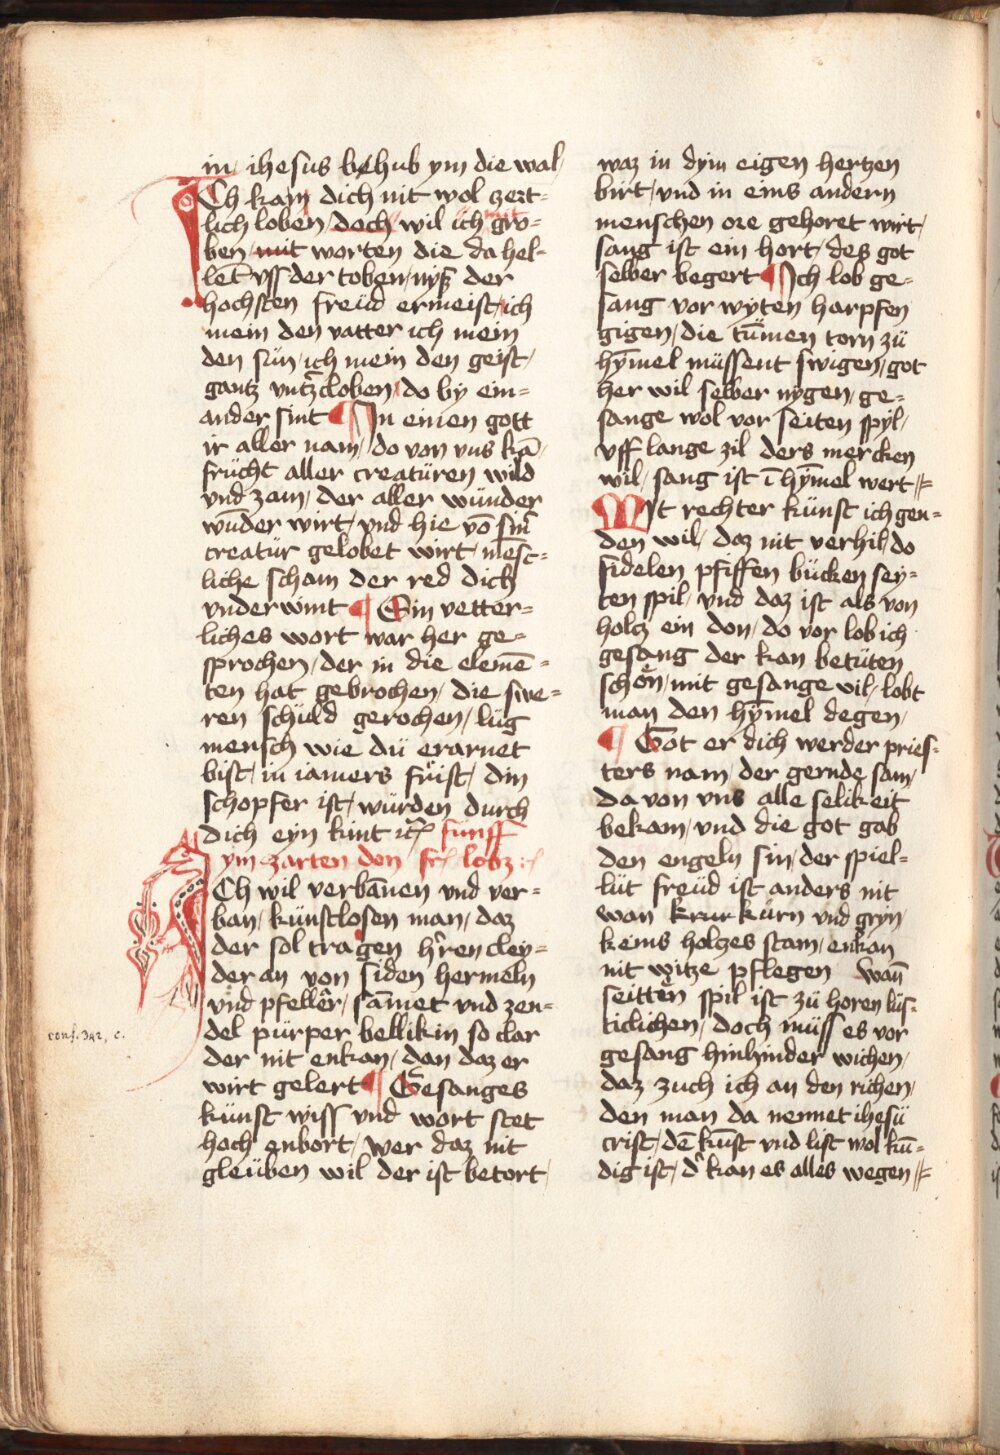 in / ihesus behub ym die wal /
Ich kan dich nit wol zert-
lich loben / doch wil ich mit gro-
ben mit worten die da hel-
lēt vff der toben / nyß der
hochsten freüd ermeist / ich
mein den vatter ich mein
den sün / ich mein den geist /
gantz vntzcloben / do by ein-
ander sint ¶ In einen gott
ir aller nam / do von vns kā /
frücht aller creatüren wild
vnd zam / der aller wünder
wunder wirt / vnd hie vō sinē
creatür gelobet wirt / mēsc-
liche scham der red dich
vnderwint ¶ Ein vetter-
liches wort war her ge-
sprochen / der in die elemē-
ten hat gebrochen / die swe-
ren schüld gerochen / lüg
mensch wie dü erarnet
bist / in iamers früist / din
schopfer ist / würden durch
dich eyn kint ꝛc̄ fünff
ym zarten don fr̄ lobz
Ich wil verbānen vnd ver-
ban / künstlosen man / daz
der sol tragen h'ren cley-
der an von siden hermeln
vnd pfeller / sāmet vnd zen-
del pürper bellikin so clar
der nit enkan / dan daz er
wirt gelert ¶ Gesanges
künst wiss vnd wort stet
hoch enbort / wer daz nit
gleüben wil der ist betort /
conf. 342, c.
waz in dym eigen hertzen
birt / vnd in eins andern
menschen ore gehoret wirt /
sang ist ein hort / des got
selber begert ¶ Ich lob ge-
sang vor wyten harpfen
gigen / die tümen torn zü
hȳmel müssent swigen / got
her wil selber nygen / ge-
sange wol vor seiten spyl /
vff lange zil ders mercken
wil / sang ist ī hȳmel wert //
Mit rechter künst ich gen-
den wil / daz nit verhil / do
fidelen pfiffen bücken sey-
ten spil / vnd daz ist als von
holcz ein don / do vor lob ich
gesang der kan betüten
schön / mit gesange vil / lobt
man den hȳmel degen /
¶ Got er dich werder pries-
ters nam / der gernde sam /
da von vns alle selikeit
bekam / vnd die got gab
den engeln sin / der spiel-
lüt freüd ist anders nit
wan krur kürn vnd gryn /
keins holzes stam / enkan
nit witze pflegen wan̄
seitten spil ist zü horen lüs-
ticlichen / doch müss es vor
gesang hinhinder wichen /
daz zuch ich an den richen /
den man da nennet ihesü
crist / dē kūst vnd list wol kū-
dig ist / d' kan es alles wegen //